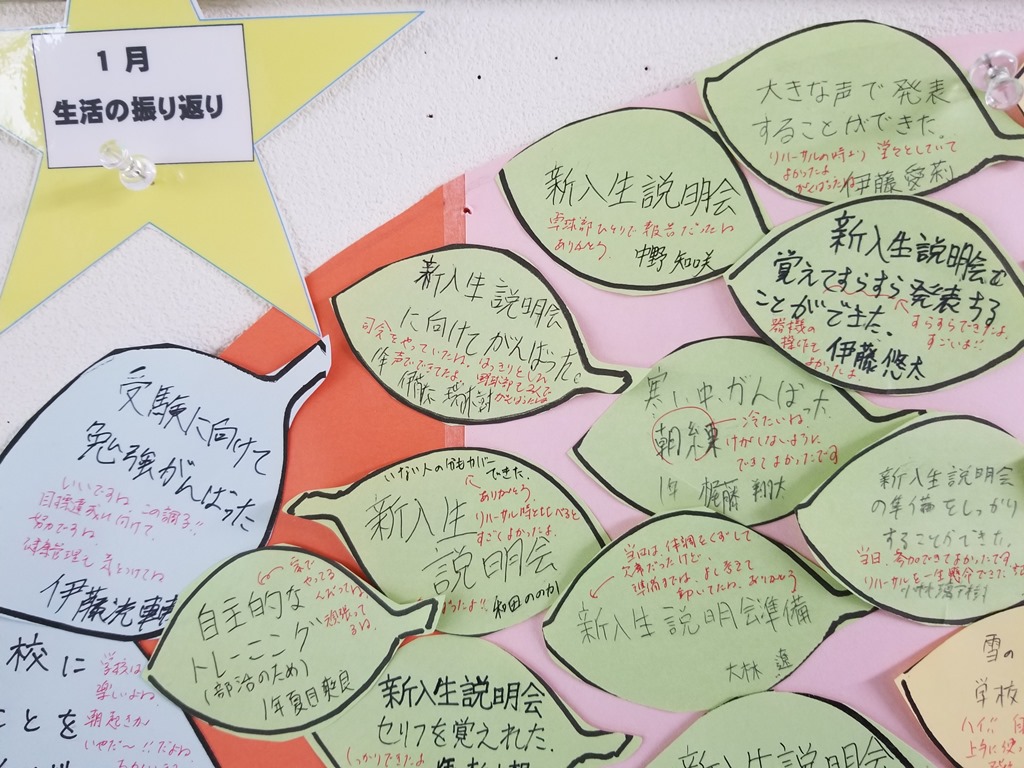 1月
生活の振り返り
大きな声で発表
することができた。
リハーサルの時より 堂々としていて
よかったよ
がんばったね
伊藤 愛莉
新入生説明会
卓球部ひとりで報告だったね
ありがとう。
中野 知咲
新入生説明会で
覚えてすらすら発表する
ことができた。
すらすらできたよ
すごいね!!
器械の
操作も
よかったよ。
伊藤 悠太
新入生説明会
に向けてがんばった。
司会をやっていたね。はっきりとした
声でできてたよ。
伊藤
寒い中、がんばった
朝練
冷たいね。
けがしないように
できてよかったです
1年 梶藤 翔大
受験に向けて
勉強がんばった
いいですね。この調子!!
目標達成に向けて、
努力ですね。
健康管理も気をつけてね
伊藤
いない人の分もカバーできた。
ありがとう。
リハーサル時と比べると
すごくよかったよ。
新入生
説明会
和田 ののか
新入生説明会
の準備をしっかり
することができた。
当日、参加できてよかったです
リハーサルも一生懸命できた
当日は、体調をくずして
欠席だったけど、
準備までは、よく考えて
動いてたね。ありがとう
新入生説明会準備
大林 遼
家で
やってる
んだってね。
頑張って
るね。
自主的な
トレーニング
(部活のため)
1年夏目
新入生説明会
セリフを覚えれた.
しっかりできたよ
校に
学校は
楽しいよね
ことを
朝起きが
いやだ〜!!だよね
雪の
学校
ハイ!!
上手に使
新入生説明会